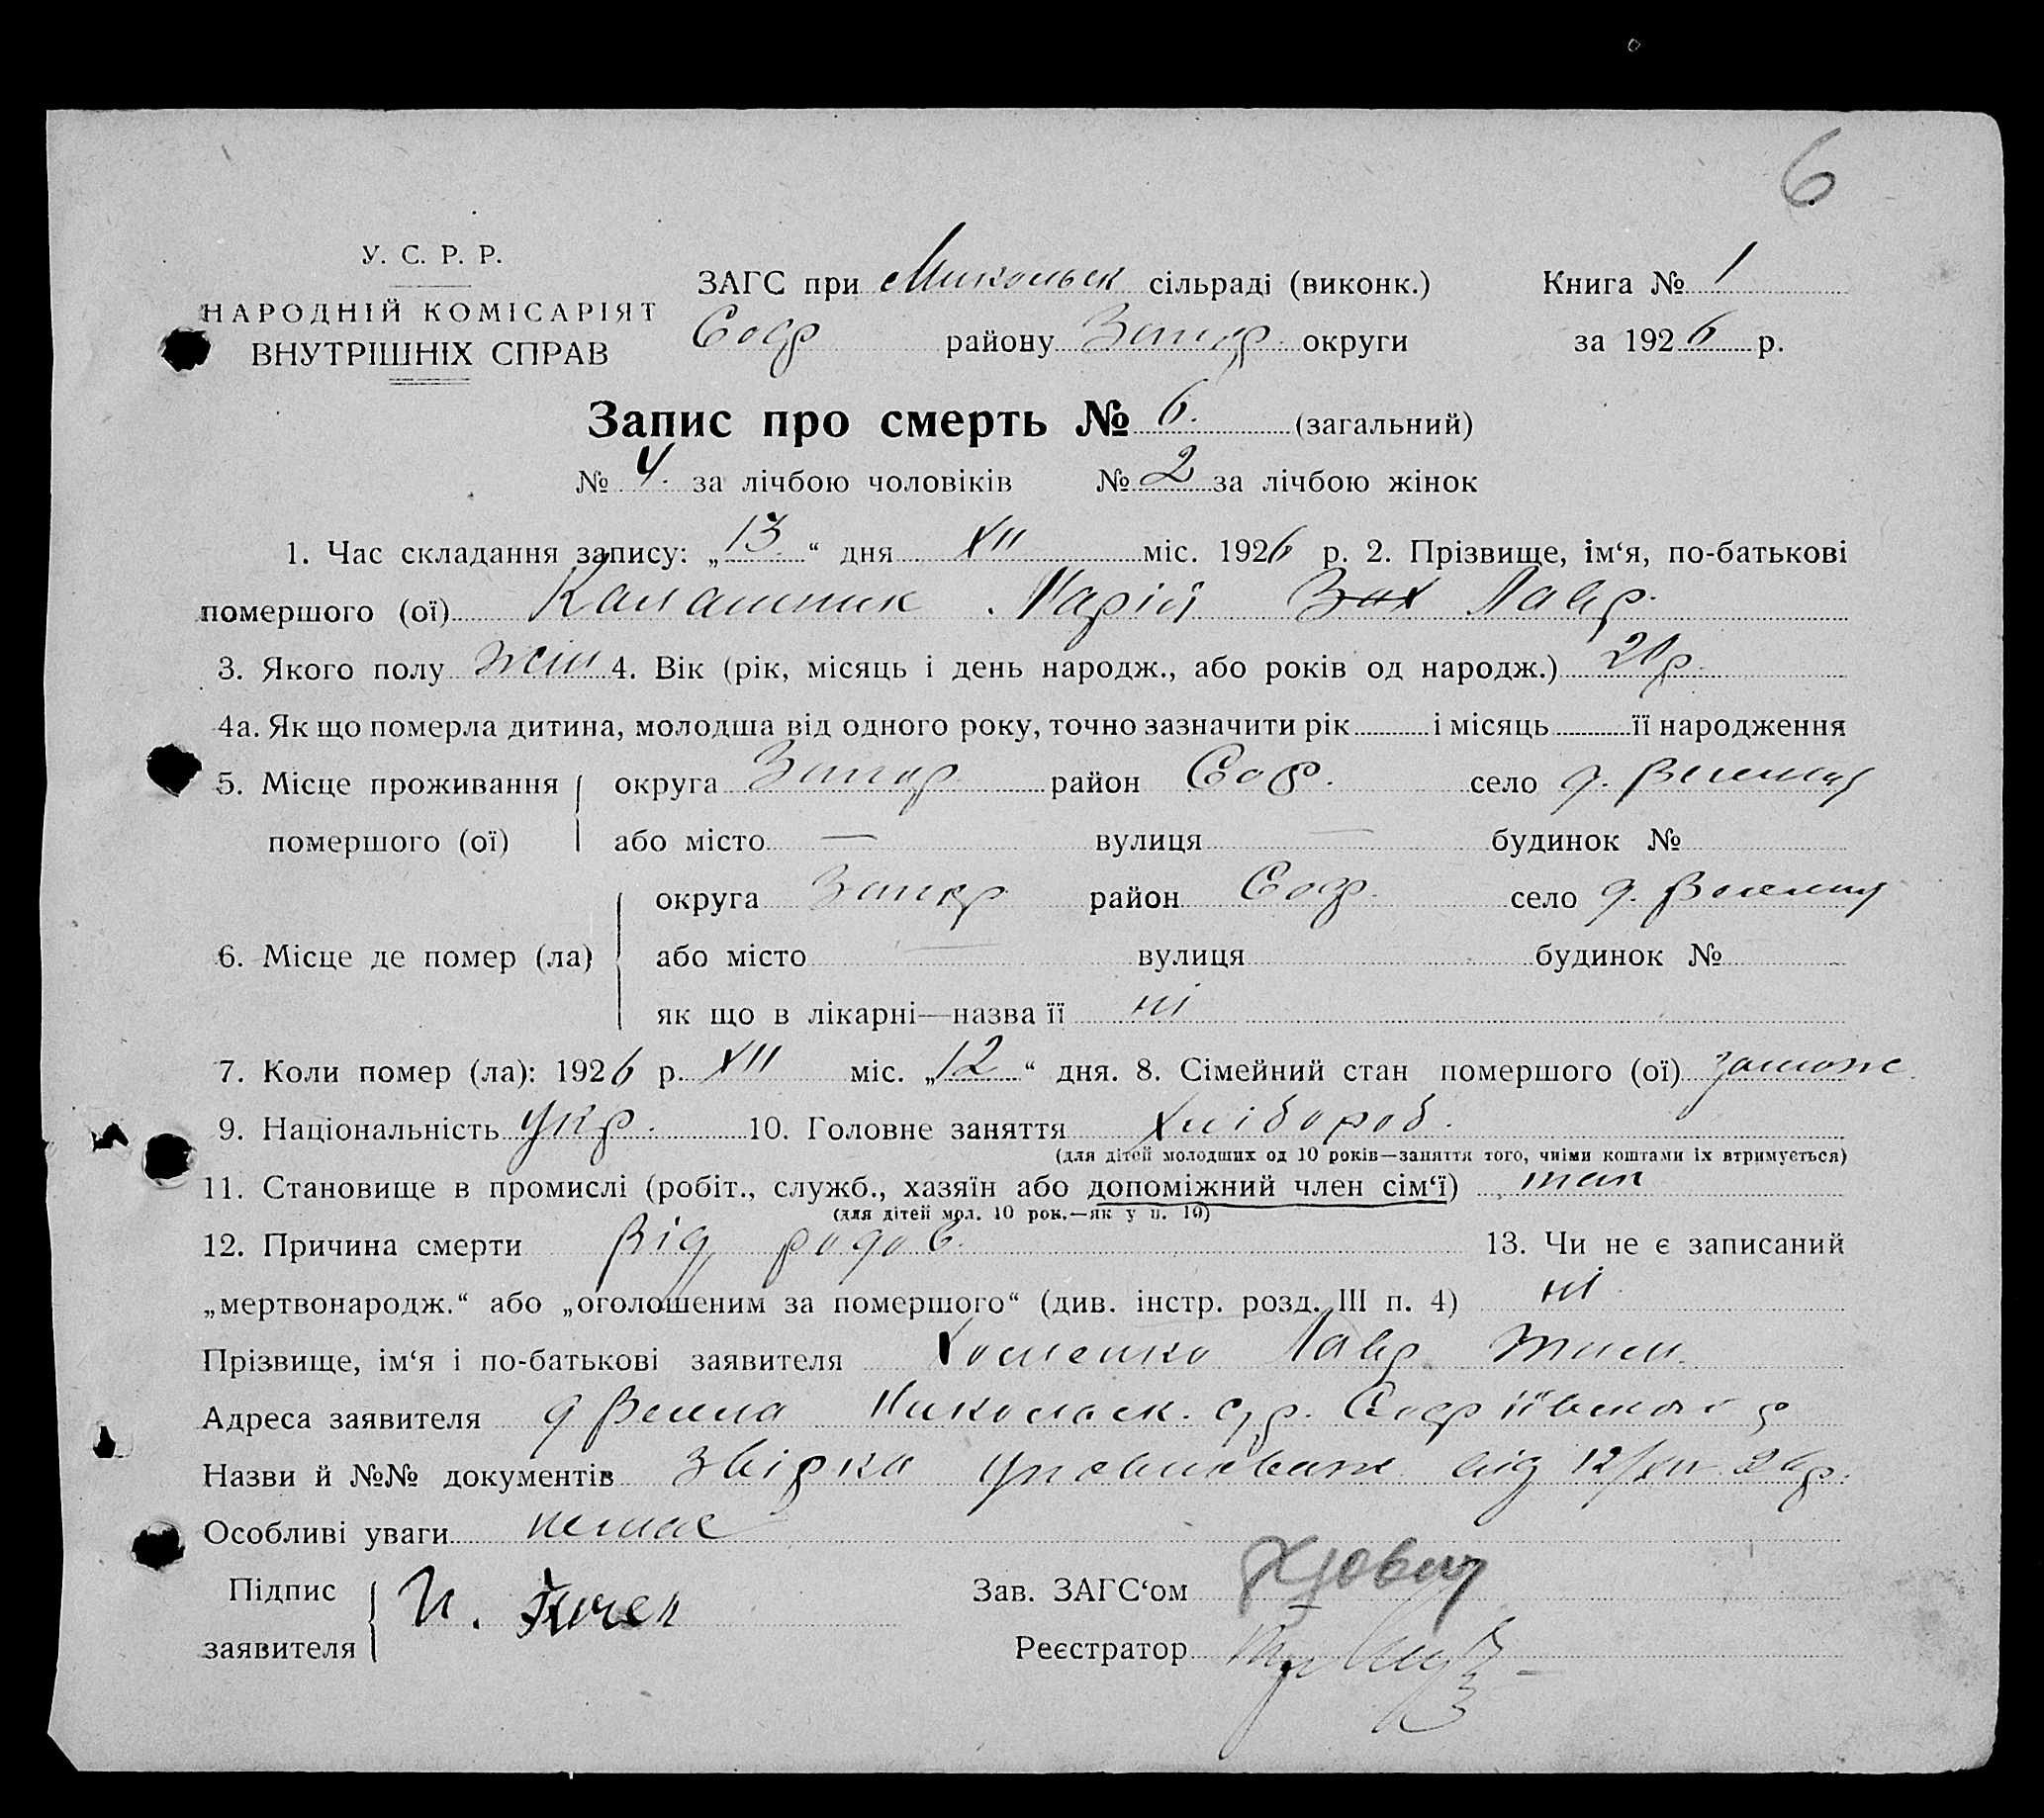 6
У. С. Р. Р.
НАРОДНІЙ КОМІСАРІЯТ
ВНУТРІШНІХ СПРАВ
ЗАГС при Микольск сільраді (виконк.) Книга № 1
Соф району Запор. округи за 1926 р.
Запис про смерть № 6. (загальний)
№ 4. за лічбою чоловіків № 2 за лічбою жінок
1. Час складання запису: „13“ дня XII міс. 1926 р. 2. Прізвище, ім‘я, по-батькові
помершого (ої) Калашник Марія Зах Лавр.
3. Якого полу жін 4. Вік (рік, місяць і день народж., або років од народж.)
4а. Як що померла дитина, молодша від одного року, точно зазначити рік і місяць її народження
5. Місце проживання округа Запор район Соф. село д.
помершого (ої) або місто — вулиця — будинок №
округа Запор район Соф. село д.
6. Місце де помер (ла) або місто вулиця будинок №
як що в лікарні—назва її ні
7. Коли помер (ла): 1926 р. XII міс. „12“ дня. 8. Сімейний стан помершого (ої) замоне
9. Національність укр. 10. Головне заняття хлібороб.
(для дітей молодших од 10 років—заняття того, чиїми коштами їх втримується)
11. Становище в промислі (робіт., служб., хазяїн або допоміжний член сім‘ї) так
(для дітей мол. 10 рок.—як у п. 10)
12. Причина смерти Від родов. 13. Чи не є записаний
„мертвонародж.“ або „оголошеним за помершого“ (див. інстр. розд. III п. 4) ні
Прізвище, ім‘я і по-батькові заявителя Хоменко Лавр
Адреса заявителя д Весела Миколаск. с/р. Софіївського р
Назви й №№ документів Звірка від 12/XII 26р.
Особливі уваги немає
Підпис Зав. ЗАГС‘ом
заявителя Реєстратор